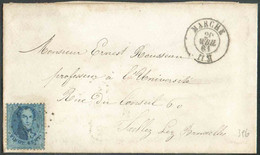 MARCHE
Monsieur Ernest Rousseau
professeur à l'Université
Rue du Conseil 60
Ixelles Lez Bruxelles